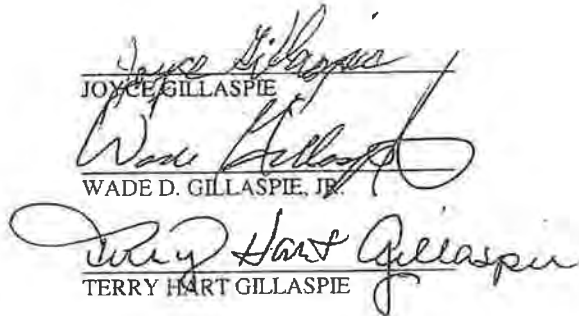 Joyce Gillaspie
JOYCE GILLASPIE
Wade Gillaspie
WADE D. GILLASPIE, JR.
Terry Hart Gillaspie
TERRY HART GILLASPIE